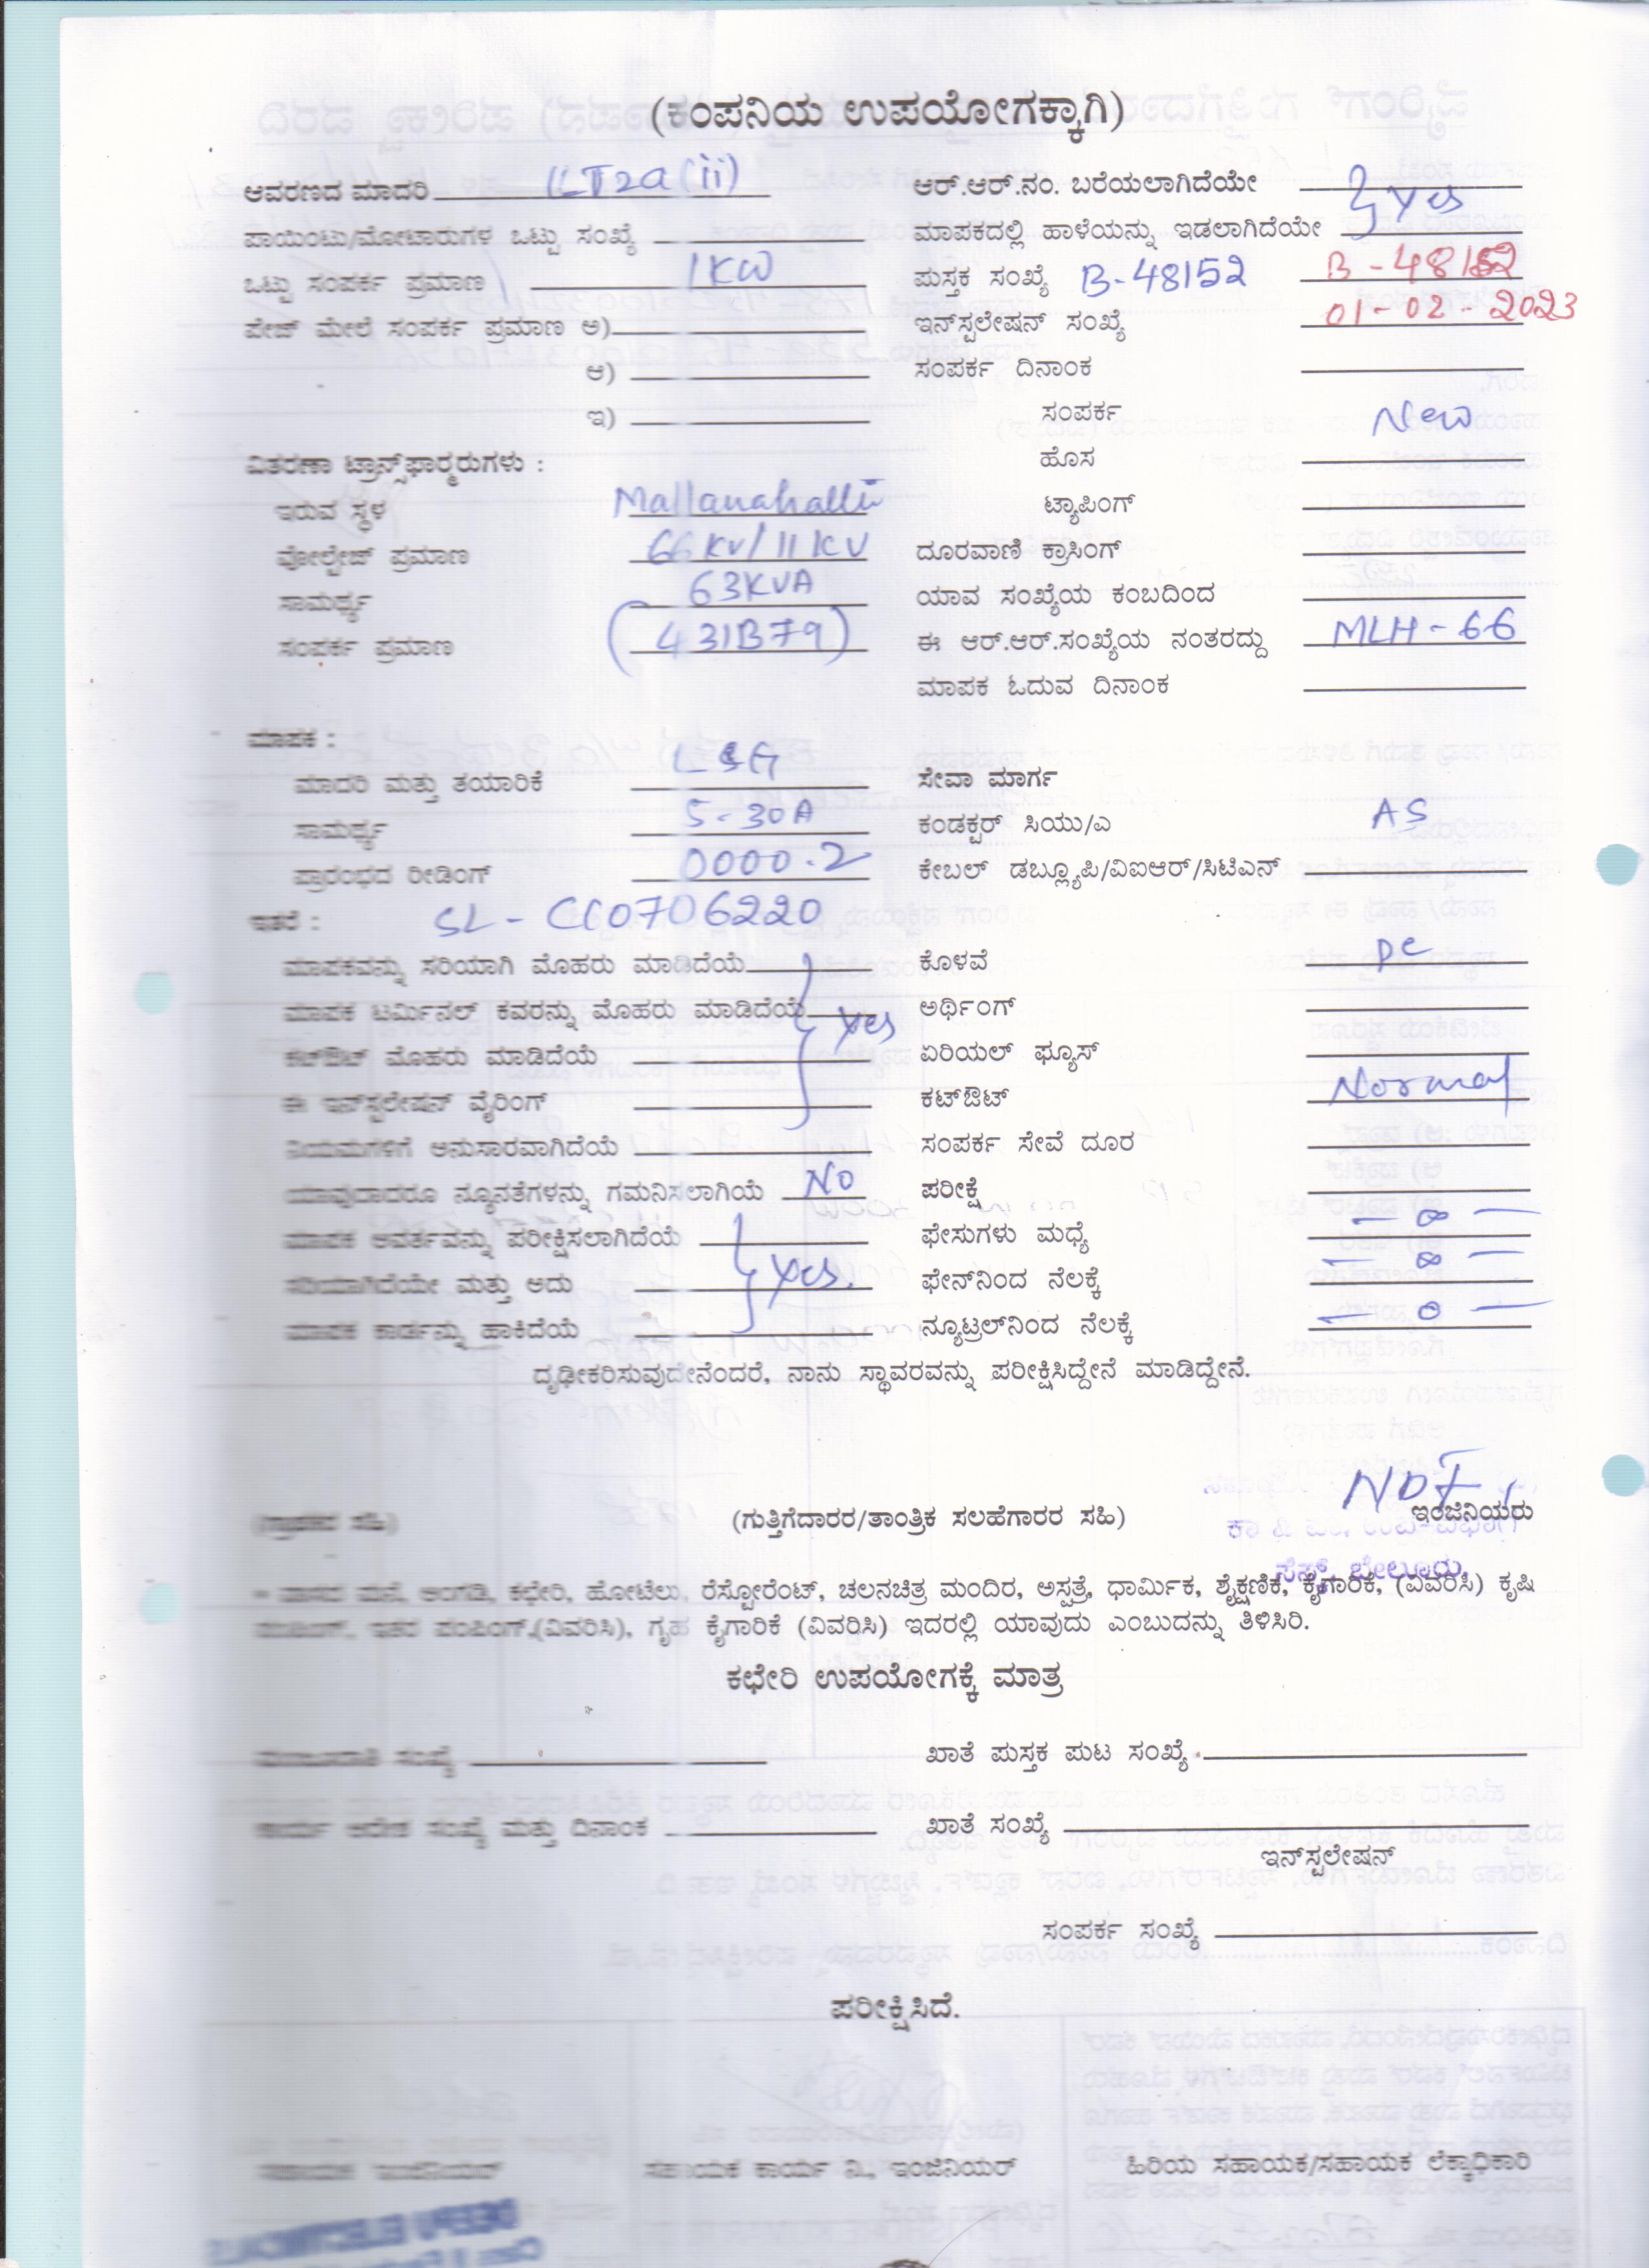 (ಕಂಪನಿಯ ಉಪಯೋಗಕ್ಕಾಗಿ)
ಆವರಣದ ಮಾದರಿ LT2a(ii) ಆರ್.ಆರ್.ನಂ. ಬರೆಯಲಾಗಿದೆಯೇ
ಪಾಯಿಂಟು/ಮೋಟಾರುಗಳ ಒಟ್ಟು ಸಂಖ್ಯೆ ಮಾಪಕದಲ್ಲಿ ಹಾಳೆಯನ್ನು ಇಡಲಾಗಿದೆಯೇ Yes
ಒಟ್ಟು ಸಂಪರ್ಕ ಪ್ರಮಾಣ 1KW ಪುಸ್ತಕ ಸಂಖ್ಯೆ B-48152 B-48152
ಪೇಜ್ ಮೇಲೆ ಸಂಪರ್ಕ ಪ್ರಮಾಣ ಅ) ಇನ್‌ಸ್ಟಲೇಷನ್ ಸಂಖ್ಯೆ 01-02-2023
ಆ) ಸಂಪರ್ಕ ದಿನಾಂಕ
ಇ) ಸಂಪರ್ಕ New
ವಿತರಣಾ ಟ್ರಾನ್ಸ್‌ಫಾರ್‍ಮರುಗಳು : ಹೊಸ
ಇರುವ ಸ್ಥಳ Mallanahalli ಟ್ಯಾಪಿಂಗ್
ವೋಲ್ಟೇಜ್ ಪ್ರಮಾಣ 66KV/11KV ದೂರವಾಣಿ ಕ್ರಾಸಿಂಗ್
ಸಾಮರ್ಥ್ಯ 63KVA ಯಾವ ಸಂಖ್ಯೆಯ ಕಂಬದಿಂದ
ಸಂಪರ್ಕ ಪ್ರಮಾಣ (431B79) ಈ ಆರ್.ಆರ್.ಸಂಖ್ಯೆಯ ನಂತರದ್ದು MLH-66
ಮಾಪಕ ಓದುವ ದಿನಾಂಕ
ಮಾಪಕ :
ಮಾದರಿ ಮತ್ತು ತಯಾರಿಕೆ L&G ಸೇವಾ ಮಾರ್ಗ
ಸಾಮರ್ಥ್ಯ 5-30A ಕಂಡಕ್ಟರ್ ಸಿಯು/ಎ AS
ಪ್ರಾರಂಭದ ರೀಡಿಂಗ್ 0000.2 ಕೇಬಲ್ ಡಬ್ಲ್ಯೂಪಿ/ವಿಐಆರ್/ಸಿಟಿಎನ್
ಇತರೆ : SL-CC0706220
ಮಾಪಕವನ್ನು ಸರಿಯಾಗಿ ಮೊಹರು ಮಾಡಿದೆಯೆ ಕೊಳವೆ PC
ಮಾಪಕ ಟರ್ಮಿನಲ್ ಕವರನ್ನು ಮೊಹರು ಮಾಡಿದೆಯೆ Yes ಅರ್ಥಿಂಗ್
ಕಟ್‌ಔಟ್ ಮೊಹರು ಮಾಡಿದೆಯೆ ಏರಿಯಲ್ ಫ್ಯೂಸ್
ಈ ಇನ್‌ಸ್ಟಲೇಷನ್ ವೈರಿಂಗ್ ಕಟ್‌ಔಟ್ Normal
ನಿಯಮಗಳಿಗೆ ಅನುಸಾರವಾಗಿದೆಯೆ ಸಂಪರ್ಕ ಸೇವೆ ದೂರ
ಯಾವುದಾದರೂ ನ್ಯೂನತೆಗಳನ್ನು ಗಮನಿಸಲಾಗಿಯೆ NO ಪರೀಕ್ಷೆ
ಮಾಪಕ ಆವರ್ತವನ್ನು ಪರೀಕ್ಷಿಸಲಾಗಿದೆಯೆ ಫೇಸುಗಳು ಮಧ್ಯೆ - ∞ -
ಸರಿಯಾಗಿದೆಯೇ ಮತ್ತು ಅದು Yes. ಫೇನ್‌ನಿಂದ ನೆಲಕ್ಕೆ - ∞ -
ಮಾಪಕ ಕಾರ್ಡನ್ನು ಹಾಕಿದೆಯೆ ನ್ಯೂಟ್ರಲ್‌ನಿಂದ ನೆಲಕ್ಕೆ - 0 -
ದೃಢೀಕರಿಸುವುದೇನೆಂದರೆ, ನಾನು ಸ್ಥಾವರವನ್ನು ಪರೀಕ್ಷಿಸಿದ್ದೇನೆ ಮಾಡಿದ್ದೇನೆ.
(ಗ್ರಾಹಕರ ಸಹಿ) (ಗುತ್ತಿಗೆದಾರರ/ತಾಂತ್ರಿಕ ಸಲಹೆಗಾರರ ಸಹಿ) ಇಂಜಿನಿಯರು
ಸೆಸ್ಕ್, ಬೇಲೂರು.
ವಾಸದ ಮನೆ, ಅಂಗಡಿ, ಕಛೇರಿ, ಹೋಟೆಲು, ರೆಸ್ಟೋರೆಂಟ್, ಚಲನಚಿತ್ರ ಮಂದಿರ, ಅಸ್ಪತ್ರೆ, ಧಾರ್ಮಿಕ, ಶೈಕ್ಷಣಿಕ, ಕೈಗಾರಿಕೆ, (ವಿವರಿಸಿ) ಕೃಷಿ
ಪಂಪಿಂಗ್, ಇತರ ಪಂಪಿಂಗ್,(ವಿವರಿಸಿ), ಗೃಹ ಕೈಗಾರಿಕೆ (ವಿವರಿಸಿ) ಇದರಲ್ಲಿ ಯಾವುದು ಎಂಬುದನ್ನು ತಿಳಿಸಿರಿ.
ಕಛೇರಿ ಉಪಯೋಗಕ್ಕೆ ಮಾತ್ರ
ಮಂಜೂರಾತಿ ಸಂಖ್ಯೆ ಖಾತೆ ಪುಸ್ತಕ ಪುಟ ಸಂಖ್ಯೆ
ಕಾರ್ಯ ಆದೇಶ ಸಂಖ್ಯೆ ಮತ್ತು ದಿನಾಂಕ ಖಾತೆ ಸಂಖ್ಯೆ
ಇನ್‌ಸ್ಟಲೇಷನ್
ಸಂಪರ್ಕ ಸಂಖ್ಯೆ
ಪರೀಕ್ಷಿಸಿದೆ.
ಸಹಾಯಕ ಇಂಜಿನಿಯರ್ ಸಹಾಯಕ ಕಾರ್ಯ ನಿ., ಇಂಜಿನಿಯರ್ ಹಿರಿಯ ಸಹಾಯಕ/ಸಹಾಯಕ ಲೆಕ್ಕಾಧಿಕಾರಿ